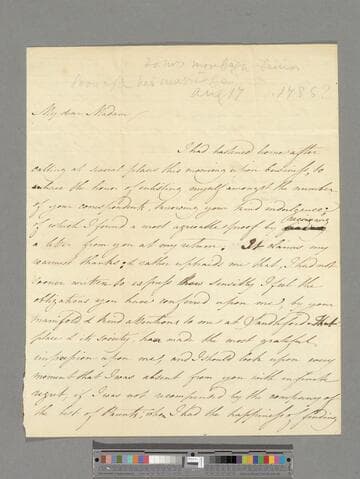 Aug 17 1785?
My dear Madam
I had hastened home after
calling at several places this morning upon business, to
the honor of enlisting myself amongst the number
of your correspondents, knowing your kind indulgence;
of which I found a most agreeable proof by receiving
a letter from you at my return. It claims my
warmest thanks, & rather upbraids me that I had not
sooner written to express how sensibly I feel the
obligations you have conferred upon me, by your
manifold & kind attentions to me at Sandleford. That
place & its Society have made the most grateful
impression upon me, and I should look upon every
moment that I was absent from you with infinite
regret, if I was not recompensed by the company of
the best of Aunts, whom I had the happiness of finding